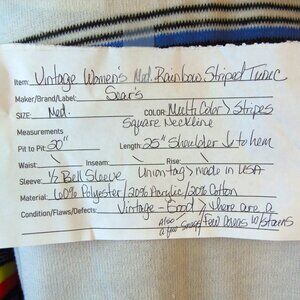 Item: Vintage Women's Med. Rainbow Striped Tunic
Maker/Brand/Label: Sear's
SIZE: Med. COLOR: Multi Color > Stripes
Measurements Square Neckline
Pit to Pit: 20" Length: 25" Shoulder ↓ to hem
Waist: \ Inseam: \ Rise: \
Sleeve: ½ Bell Sleeve Union tag > made in USA
Material: 60% Polyester/20% Acrylic/20% Cotton
Condition/Flaws/Defects: Vintage - Good > there are a
also few areas w/stains
a few snags/